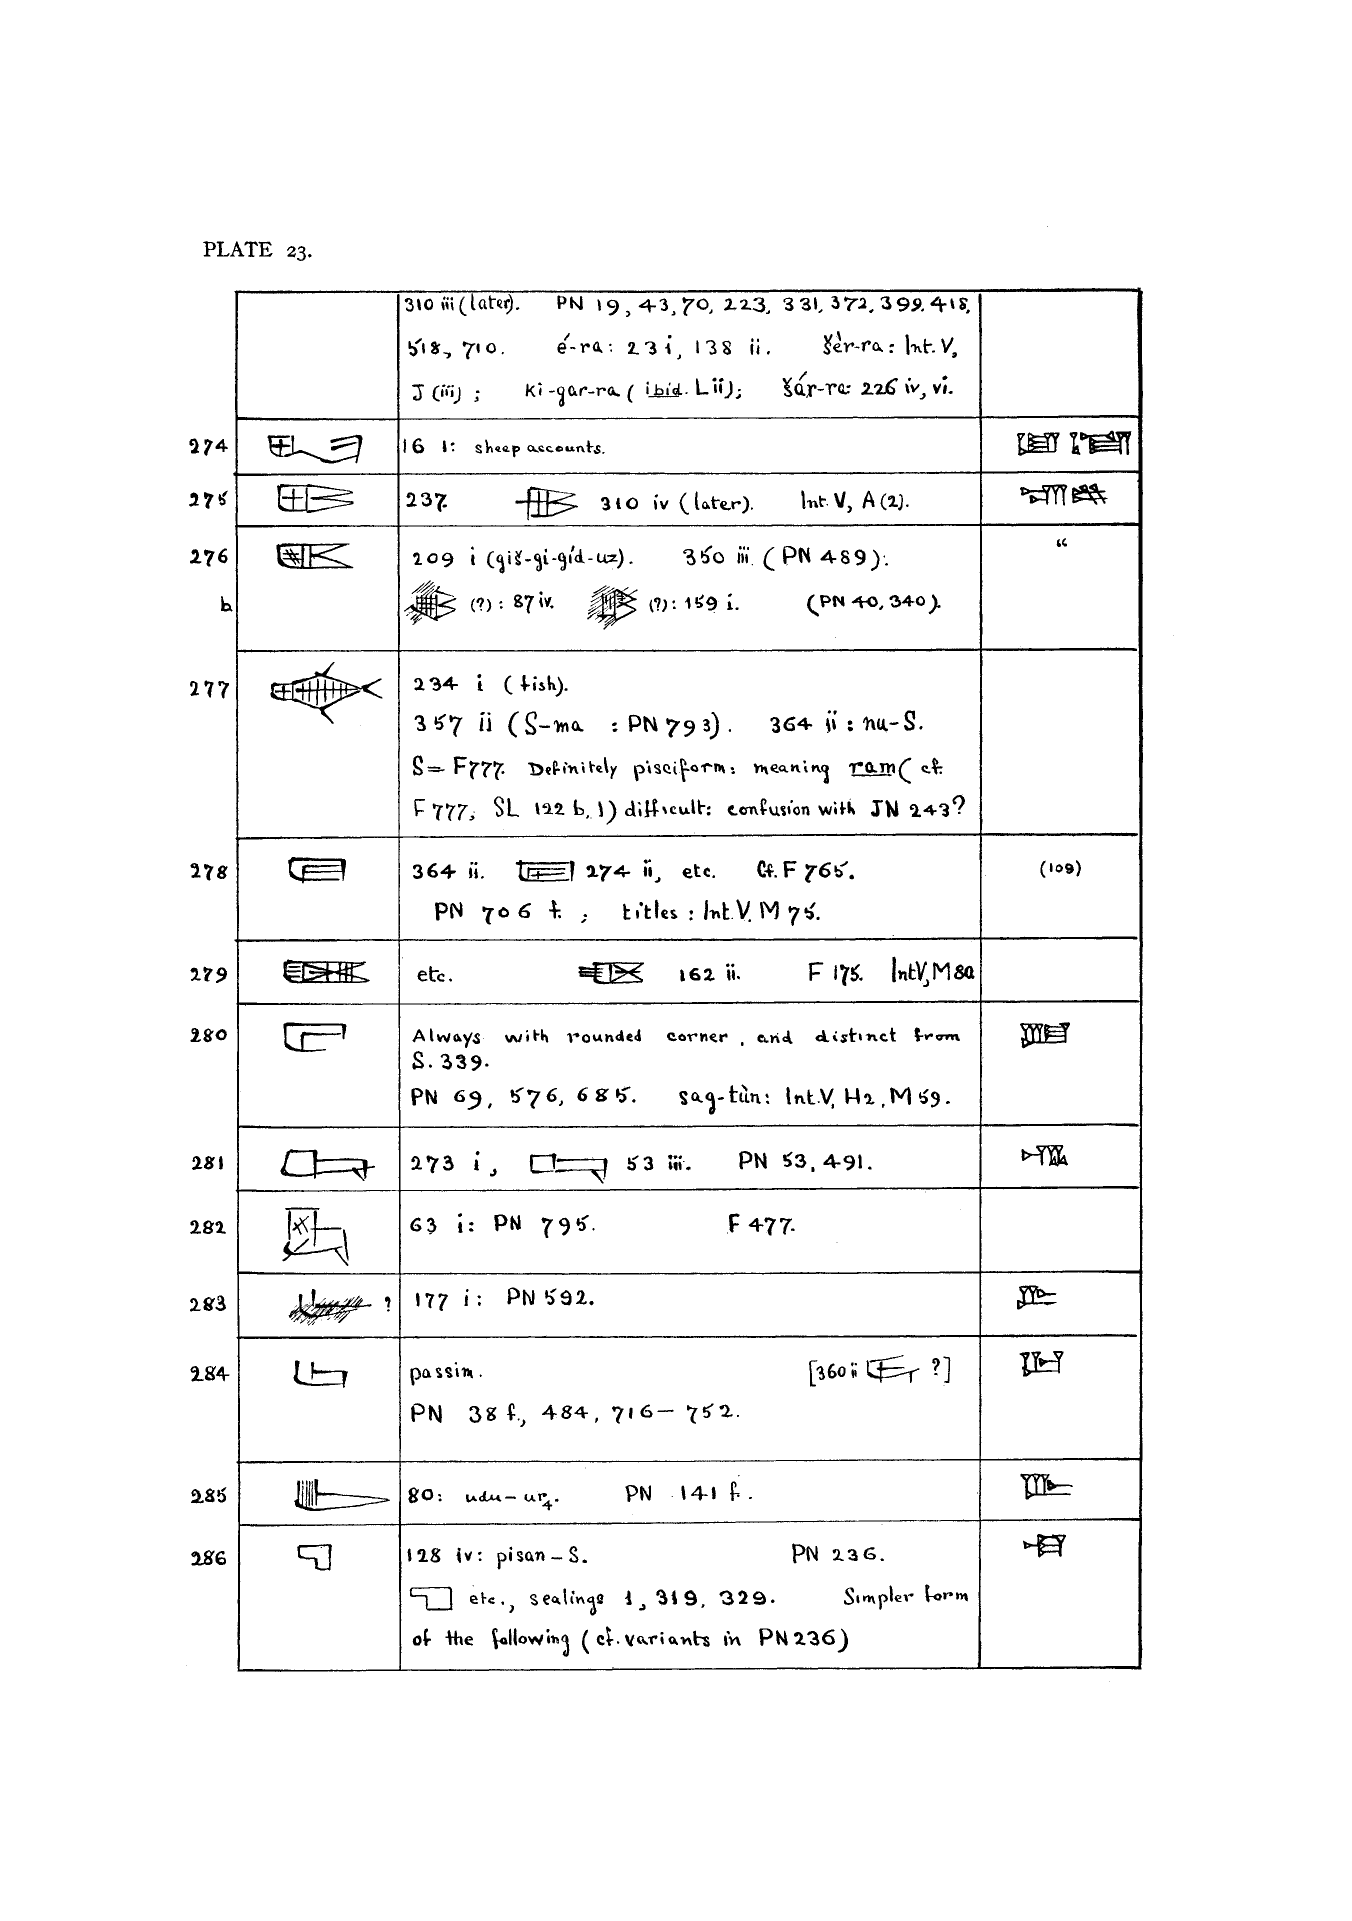 PLATE 23.
310 iii (later). PN 19, 43, 70, 223, 331, 372, 399, 418,
518, 710. é-ra: 23 i, 138 ii. šèr-ra: Int. V,
J (iii); ki-gar-ra (ibid. L ii); šár-ra: 226 iv, vi.
274 16 1: sheep accounts.
275 237. 310 iv (later). Int. V, A (2).
276 209 i (giš-gi-gíd-uz). 350 iii (PN 489). "
b (?): 87 iv. (?): 159 i. (PN 40, 340).
277 234 i (fish).
357 ii (S-ma : PN 793). 364 ii: nu-S.
S = F777. Definitely pisciform: meaning ram (cf.
F 777, SL 122 b, 1) difficult: confusion with JN 243?
278 364 ii. 274 ii, etc. Cf. F 765. (109)
PN 706 f. ; titles: Int. V. M 75.
279 etc. 162 ii. F 175. Int V, M 80
280 Always with rounded corner, and distinct from
S. 339.
PN 69, 576, 685. sag-tùn: Int. V, H2, M 59.
281 273 i, 53 iii. PN 53, 491.
282 63 i: PN 795. F 477.
283 ? 177 i: PN 592.
284 passim. [360 ii ?]
PN 38 f., 484, 716–752.
285 80: udu-ur₄. PN 141 f.
286 128 iv: pisan-S. PN 236.
etc., sealings 1, 319, 329. Simpler form
of the following (cf. variants in PN 236)